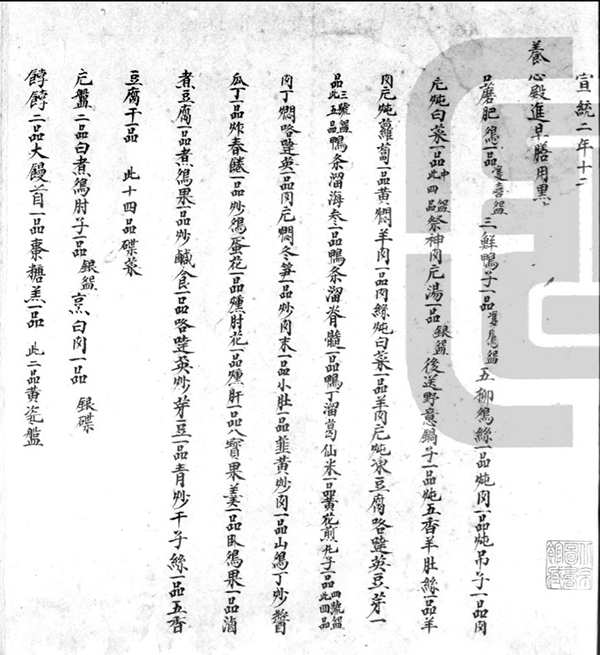 宣統二年十二
養心殿進早膳用黑
口蘑肥鷄一品雙喜盌三鮮鴨子一品 五柳鷄絲一品炖肉一品炖吊子一品肉
片炖白菜一品此四品中盌祭神肉片湯一品銀盌後送野意鍋子一品炖五香羊肚絲一品羊
肉片炖蘿蔔一品黃燜羊肉一品肉絲炖白菜一品羊肉片炖凍豆腐咯噠英豆芽一
品此五品三號盌鴨条溜海參一品鴨条溜脊髓一品鴨丁溜葛仙米一品黃花煎丸子一品此四品四號盌
肉丁燜咯噠英一品肉片燜冬笋一品炒肉末一品小肚一品韮黃炒肉一品山鷄丁炒醬
瓜丁一品炸春餞一品炒鷄蛋花一品燻肘花一品燻肝一品八寶果羹一品臥鷄果一品滷
煮豆腐一品煮鷄果一品炒鹹食一品咯噠英炒芽豆一品青炒干子絲一品五香
豆腐干一品 此十四品碟菜
片盤二品白煮鷄肘子一品銀盤烹白肉一品 銀碟
餑餑二品大饅首一品棗糖羔一品 此二品黃瓷盤